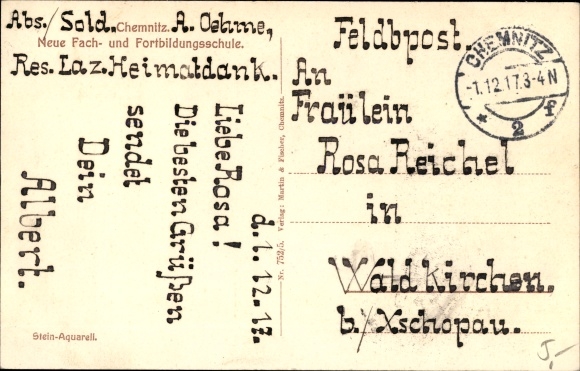 Abs./ Sold. A. Oehme,
Chemnitz.
Neue Fach- und Fortbildungsschule.
Res. Laz. Heimatdank.
d. 1. 12. 17.
Liebe Rosa!
Die besten Grüßen
sendet
Dein
Albert.
Stein-Aquarell.
Nr. 752/5. Verlag: Martin & Fischer, Chemnitz.
Feldbpost.
An
Fraülein
Rosa Reichel
in
Waldkirchen.
b./ Xschopau.
CHEMNITZ
-1.12.17.3-4N
* 2 f
5,-